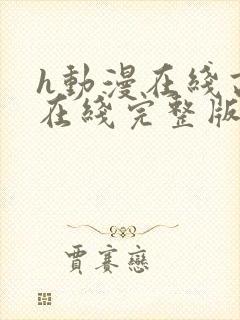 h動漫在綫
在綫完整版
賈賽戀